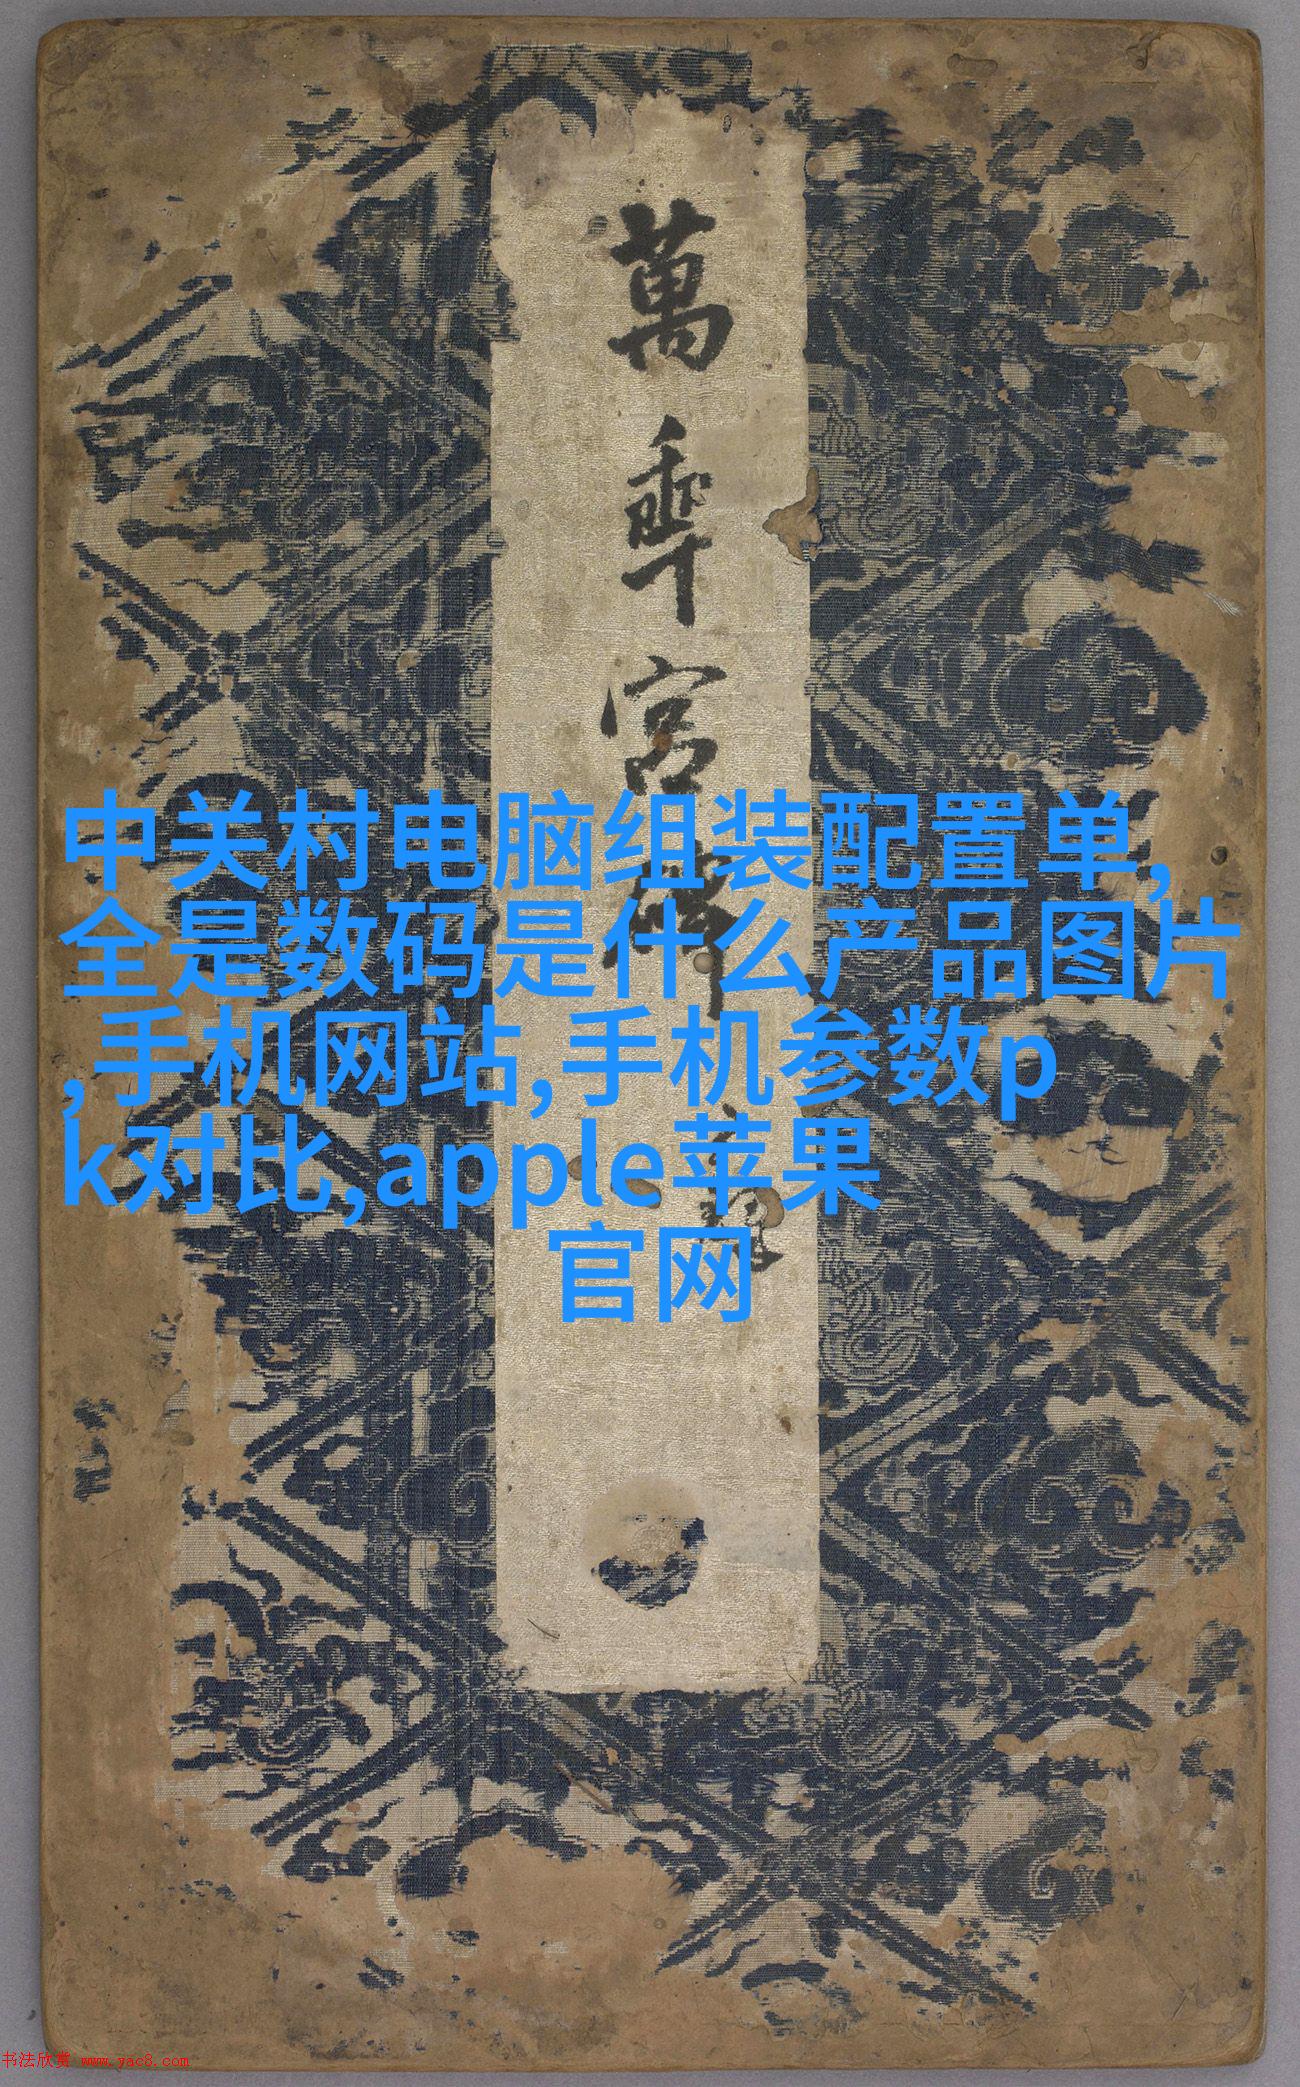 萬
年
宮
中关村电脑组装配置单,
全是数码是什么产品图片
,手机网站,手机参数p
k对比,apple苹果
官网
书法欣赏 www.yac8.com